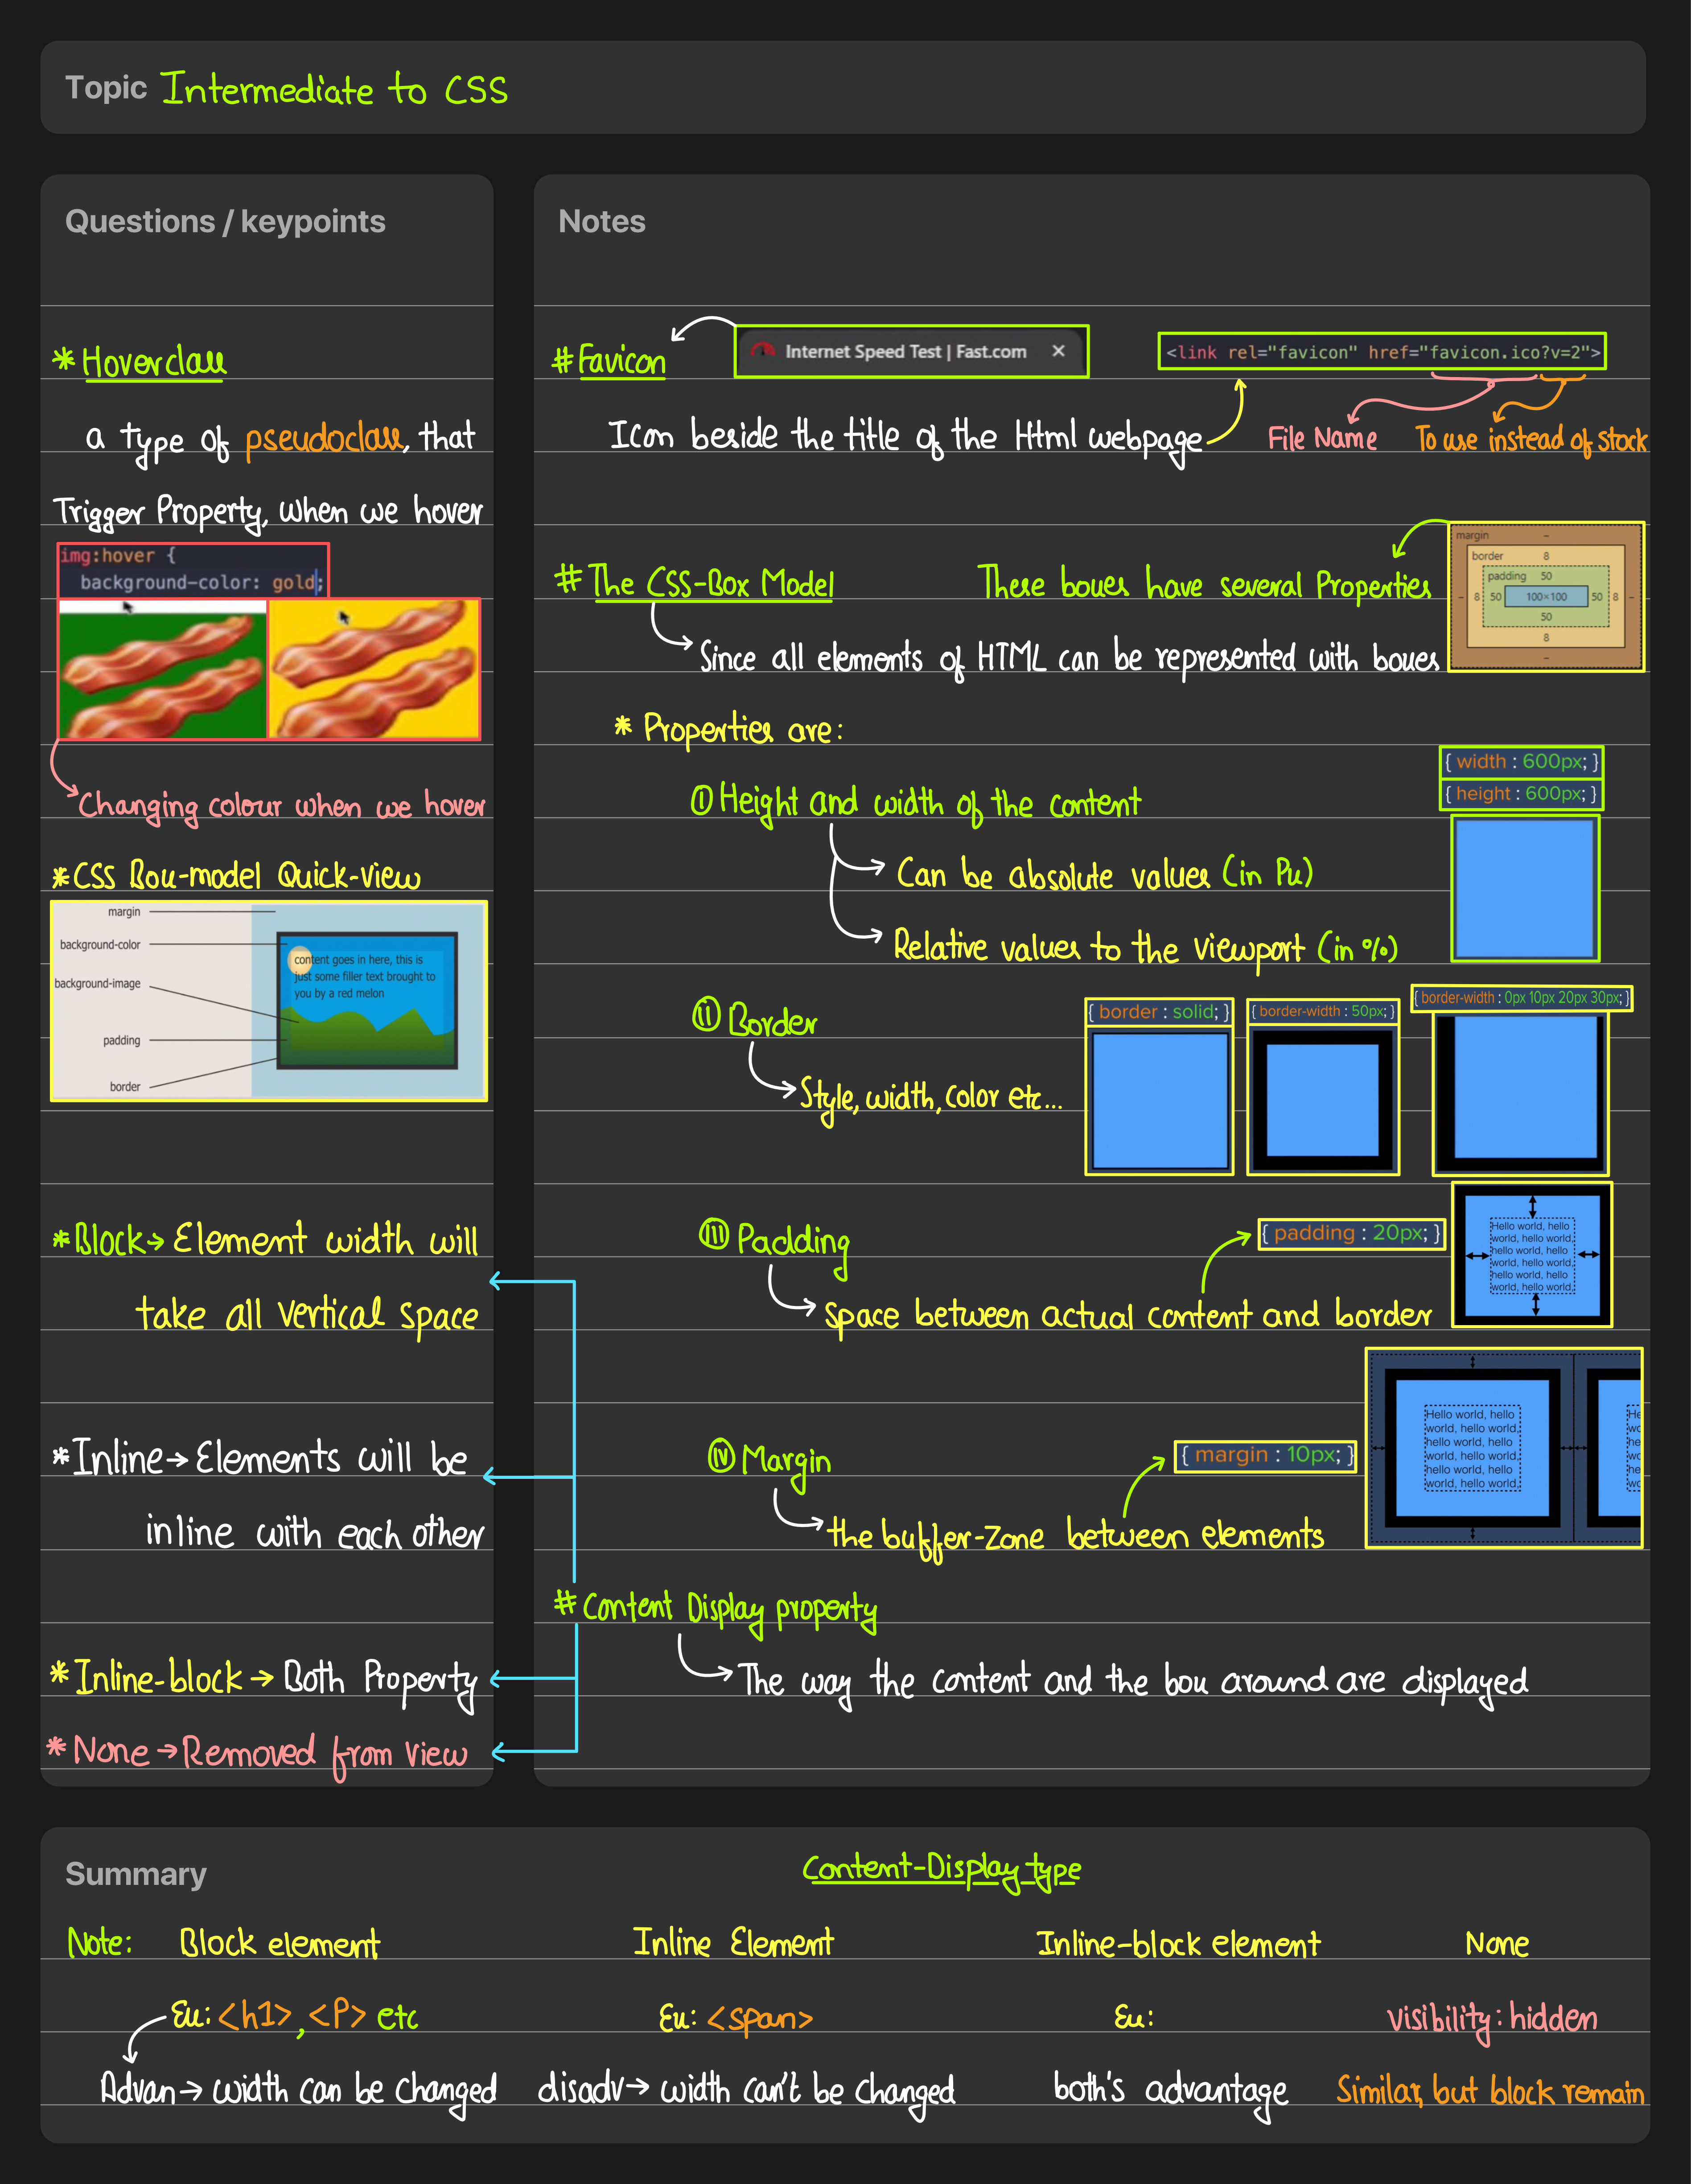 Topic Intermediate to CSS
Questions / keypoints
* Hoverclass
a type of pseudoclass, that
Trigger Property, when we hover
img:hover {
background-color: gold;
Changing colour when we hover
* CSS Box-model Quick-view
margin
background-color
background-image
padding
border
content goes in here, this is
just some filler text brought to
you by a red melon
* Block → Element width will
take all vertical space
* Inline → Elements will be
inline with each other
* Inline-block → Both Property
* None → Removed from view
Notes
# Favicon
Internet Speed Test | Fast.com ×
<link rel="favicon" href="favicon.ico?v=2">
Icon beside the title of the Html webpage
File Name
To use instead of stock
# The CSS-Box Model
These boxes have several Properties
margin -
border 8
padding 50
- 8 50 100×100 50 8 -
50
8
-
Since all elements of HTML can be represented with boxes
* Properties are:
{ width : 600px; }
{ height : 600px; }
① Height and width of the content
Can be absolute values (in Px)
Relative values to the viewport (in %)
ⅱ Border
{ border : solid; }
{ border-width : 50px; }
{ border-width : 0px 10px 20px 30px; }
Style, width, color etc...
ⅲ Padding
{ padding : 20px; }
Hello world, hello
world, hello world,
hello world, hello
world, hello world,
hello world, hello
world, hello world,
space between actual content and border
ⅳ Margin
{ margin : 10px; }
Hello world, hello
world, hello world,
hello world, hello
world, hello world,
hello world, hello
world, hello world,
the buffer-zone between elements
# Content Display property
The way the content and the box around are displayed
Summary
Content-Display type
Note: Block element Inline Element Inline-block element None
Ex: <h1>, <P> etc Ex: <span> Ex: visibility: hidden
Advan → width can be changed disadv → width can't be changed both's advantage Similar, but block remain